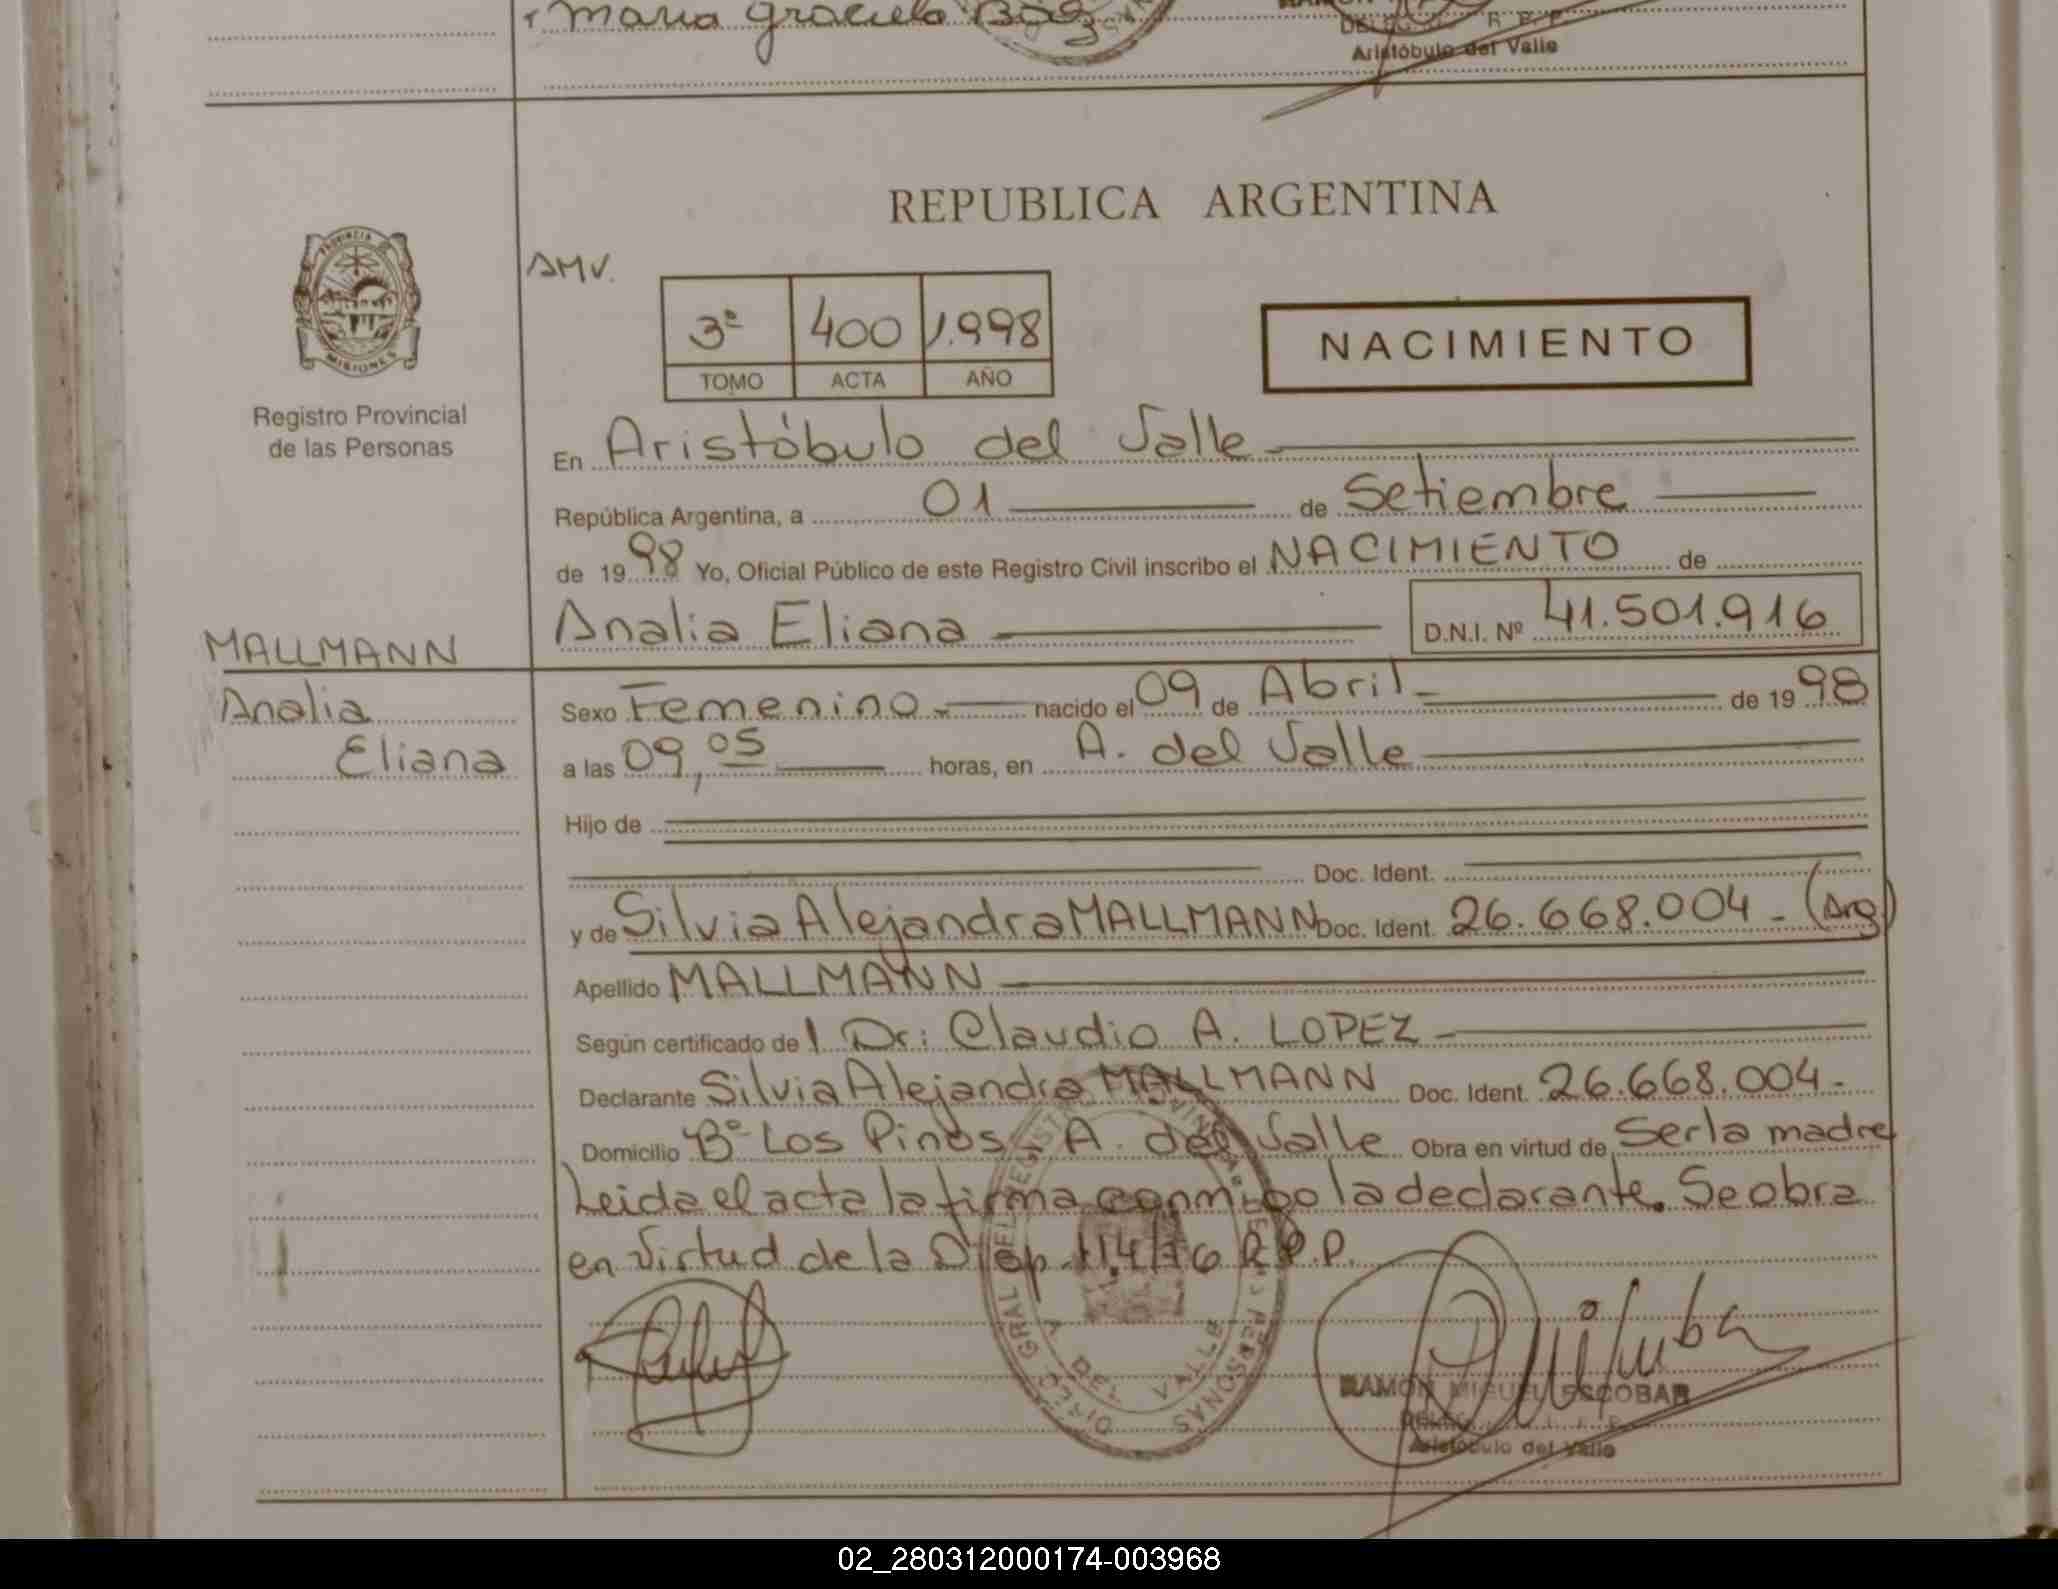 Maria Graciela Báez
Aristóbulo del Valle
REPUBLICA ARGENTINA
PROVINCIA DE
MISIONES
Registro Provincial
de las Personas
AMV.
3º 400 1.998
TOMO ACTA AÑO
NACIMIENTO
En Aristóbulo del Valle
República Argentina, a 01 de Setiembre
de 1998 Yo, Oficial Público de este Registro Civil inscribo el NACIMIENTO de
Analia Eliana D.N.I. Nº 41.501.916
MALLMANN
Analia
Eliana
Sexo Femenino.- nacido el 09 de Abril- de 1998
a las 09,05 horas, en A. del Valle
Hijo de
Doc. Ident.
y de Silvia Alejandra MALLMANN Doc. Ident. 26.668.004- (Arg)
Apellido MALLMANN
Según certificado de l Dr: Claudio A. LOPEZ-
Declarante Silvia Alejandra MALLMANN Doc. Ident. 26.668.004-
Domicilio Bº Los Pinos, A. del Valle Obra en virtud de Ser la madre
Leida el acta la firma conmigo la declarante. Se obra
en virtud de la Disp. 114/76 R.P.P.
DIREC. GRAL DEL REGISTRO PROVINCIAL DE LAS PERSONAS
A. DEL VALLE
RAMON MIGUEL ESCOBAR
Aristóbulo del Valle
02_280312000174-003968